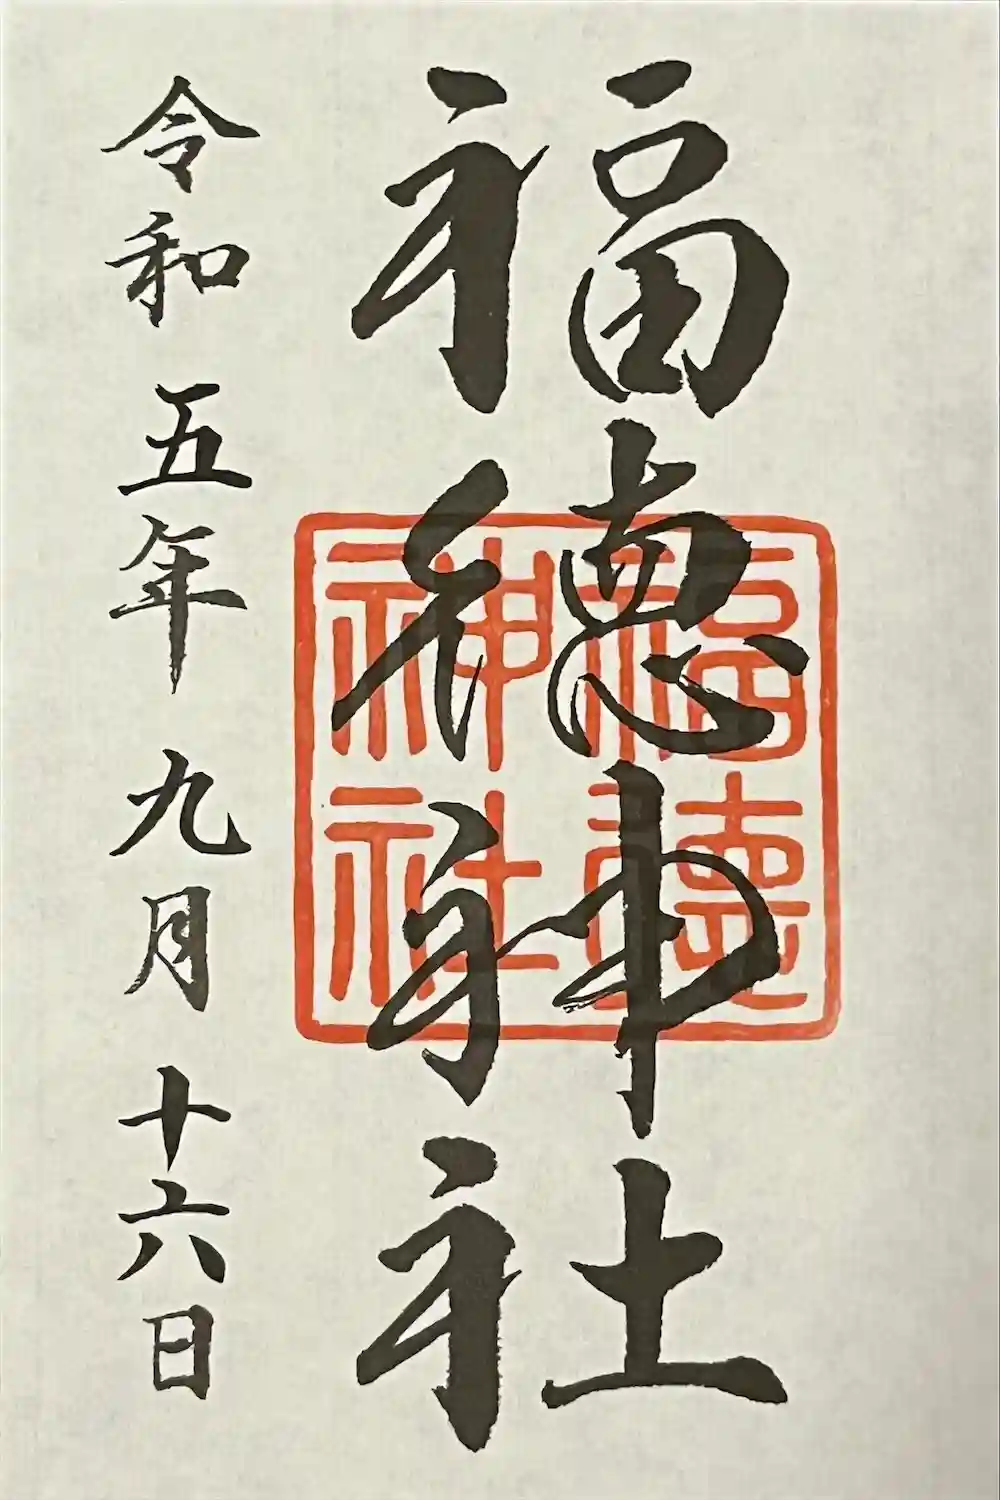 福徳神社
福徳
神社
令和五年九月十六日